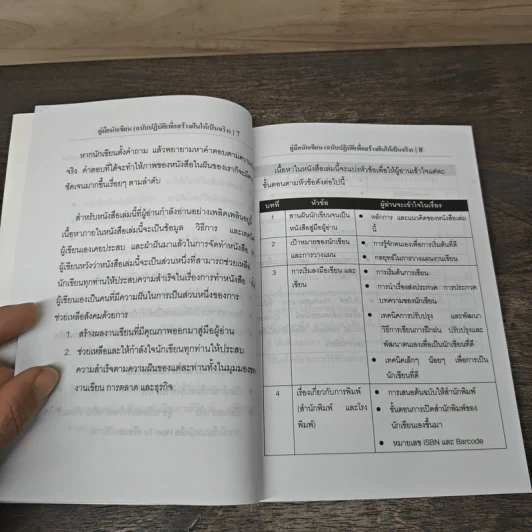 คู่มือนักเขียน (ฉบับปฏิบัติเพื่อสร้างฝันให้เป็นจริง) | 7
หากนักเขียนตั้งคำถาม แล้วพยายามหาคำตอบตามความ
จริง คำตอบที่ได้จะทำให้ภาพของหนังสือในฝันของเราก็จะ
ชัดเจนมากขึ้นเรื่อยๆ ตามลำดับ
สำหรับหนังสือเล่มนี้ที่ผู้อ่านกำลังอ่านอย่างเพลิดเพลินอยู่นี้
เนื้อหาภายในหนังสือเล่มนี้จะเป็นข้อมูล วิธีการ และเทคนิค
ผู้เขียนเองเคยประสบ และฝ่าฟันมาแล้วในการจัดทำหนังสือ
ผู้เขียนหวังว่าหนังสือเล่มนี้จะเป็นส่วนหนึ่งที่สามารถช่วยเหลือ
นักเขียนทุกท่านให้ประสบความสำเร็จในเรื่องการทำหนังสือ
ผู้เขียนเองเป็นคนที่มีความฝันในการเป็นส่วนหนึ่งของการ
ช่วยเหลือสังคมด้วยการ
1. สร้างผลงานเขียนที่มีคุณภาพออกมาสู่มือผู้อ่าน
2. ช่วยเหลือและให้กำลังใจนักเขียนทุกท่านให้ประสบ
ความสำเร็จตามความฝันของแต่ละท่านทั้งในมุมมองของ
งานเขียน การตลาด และธุรกิจ
คู่มือนักเขียน (ฉบับปฏิบัติเพื่อสร้างฝันให้เป็นจริง) | 8
เนื้อหาในหนังสือเล่มนี้จะแบ่งหัวข้อเพื่อให้ผู้อ่านเข้าใจแต่ละ
ขั้นตอนตามหัวข้อดังต่อไปนี้
บทที่ หัวข้อ ผู้อ่านจะเข้าใจในเรื่อง
1 สานฝันนักเขียนจนเป็น
หนังสือสู่มือผู้อ่าน
● หลักการ และแนวคิดของหนังสือเล่ม
นี้
2 เป้าหมายของนักเขียน
และการวางแผน
● การรู้จักตนเองเพื่อการเริ่มต้นที่ดี
● กลยุทธ์ในการวางแผนงานเขียน
3 การเริ่มลงมือเขียน และ
เขียน
● การเริ่มต้นการเขียน
● การนำเรื่องส่งประกวด การประกวด
บทความของนักเขียน
● เทคนิคการปรับปรุง และพัฒนา
วิธีการเขียนการฝึกฝน ปรับปรุงและ
พัฒนาตนเองเพื่อเป็นนักเขียนที่ดี
● เทคนิคเล็กๆ น้อยๆ เพื่อการเป็น
นักเขียนที่ดี
4 เรื่องเกี่ยวกับการพิมพ์
(สำนักพิมพ์ และโรง
พิมพ์)
● การเสนอต้นฉบับให้สำนักพิมพ์
● ขั้นตอนการเปิดสำนักพิมพ์ของ
นักเขียนเองขึ้นมา
● หมายเลข ISBN และ Barcode